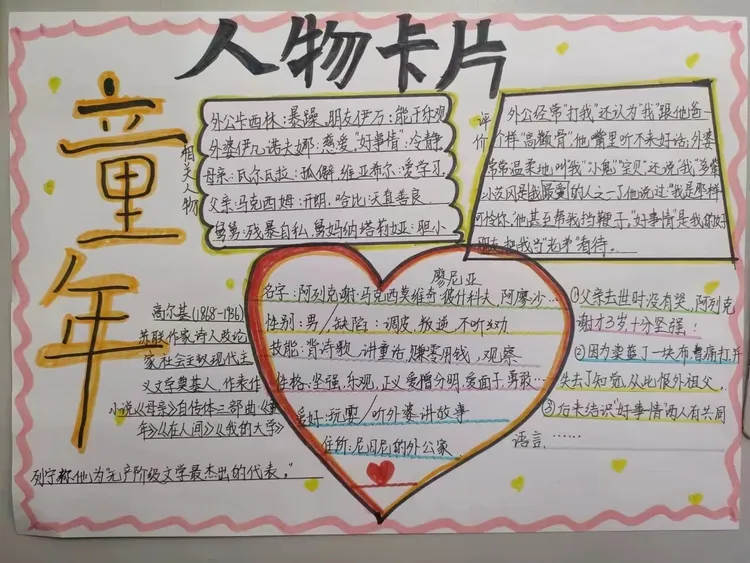 人物卡片
童年
相关人物
外公卡西林：暴躁，朋友伊万：能干乐观
外婆伊凡诺夫娜：慈爱，"好事情"：冷静
母亲：瓦尔瓦拉：孤僻，维亚希尔：爱学习
父亲：马克西姆：开朗，哈比：天真善良
舅舅：残暴自私，舅妈纳塔莉娅：胆小
评价
外公经常"打我"还认为"我"跟他爸一
个样"高颧骨"，他嘴里听不来好话；外婆
常常温柔地叫我"小鬼""宝贝"，还说"我"
小茨冈是我最爱的人之一了他说过"我是那样
可怜你，他甚至帮我挡鞭子，"好事情"是我的好
朋友，把我当"老弟"看待。……
高尔基(1868-1936)
苏联作家诗人政论
家社会主义现代主
义文学奠基人，代表作
小说《母亲》自传体三部曲《童
年》《在人间》《我的大学》
列宁称他为"无产阶级文学最杰出的代表。"
廖尼亚
名字：阿列克谢·马克西莫维奇·彼什科夫 阿廖沙…
性别：男/缺陷：调皮，叛逆，不听劝
技能：背诗歌，讲童话，赚零用钱，观察
性格：坚强，乐观，正义 爱憎分明，爱面子，勇敢…
爱好：玩耍/听外婆讲故事
住所：尼日尼的外公家
①父亲去世时没有哭，阿列克
谢才3岁，十分坚强！
②因为染蓝了一块布，曾痛打并
失去了知觉，从此恨外祖父，
③后来结识"好事情"两人有共同
语言……